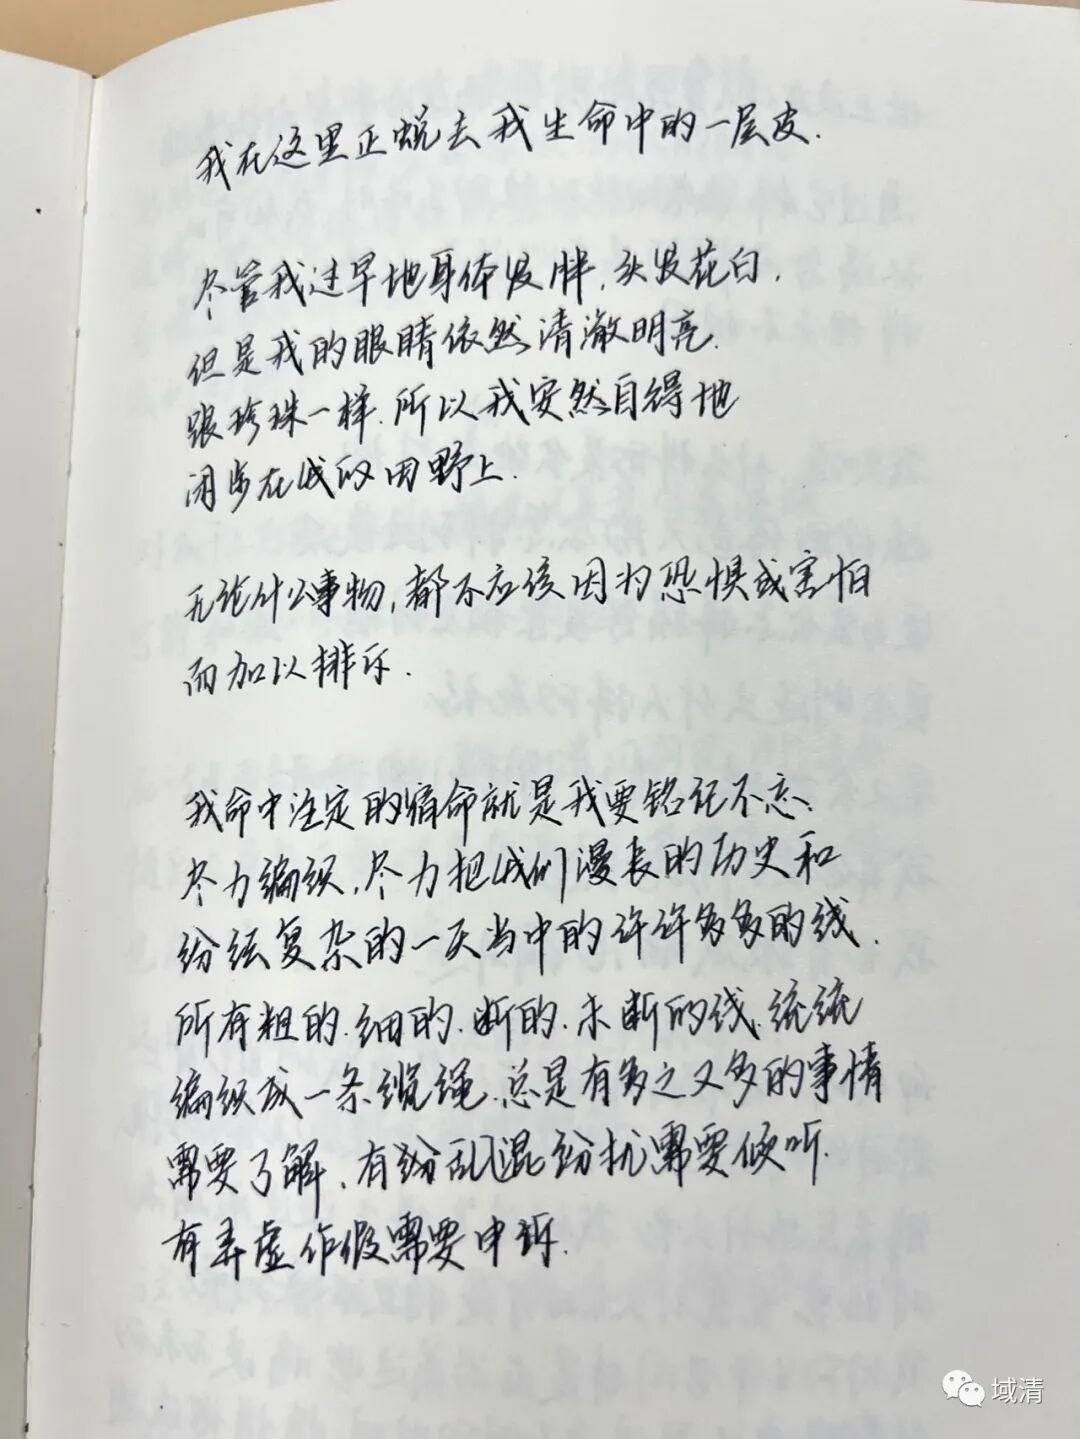 我在这里正蜕去我生命中的一层皮.
尽管我过早地身体发胖,头发花白,
但是我的眼睛依然清澈明亮.
跟珍珠一样.所以我安然自得地
闲步在我的田野上.
无论什么事物,都不应该因为恐惧或害怕
而加以排斥.
我命中注定的宿命就是我要铭记不忘、
尽力编织,尽力把我们漫长的历史和
纷纭复杂的一天当中的许许多多的线.
所有粗的.细的.断的.未断的线.统统
编织成一条缆绳.总是有多之又多的事情
需要了解.有纷乱混纷扰需要倾听.
有弄虚作假需要申诉.
域清